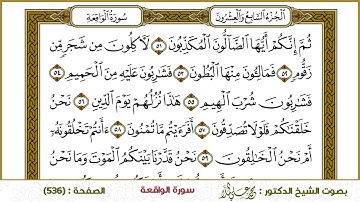 الجزء السابع والعشرون سورة الواقعة
ثُمَّ إِنَّكُمْ أَيُّهَا الضَّالُّونَ الْمُكَذِّبُونَ ٥١ لَآكِلُونَ مِن شَجَرٍ مِّن
زَقُّومٍ ٥٢ فَمَالِئُونَ مِنْهَا الْبُطُونَ ٥٣ فَشَارِبُونَ عَلَيْهِ مِنَ الْحَمِيمِ ٥٤
فَشَارِبُونَ شُرْبَ الْهِيمِ ٥٥ هَٰذَا نُزُلُهُمْ يَوْمَ الدِّينِ ٥٦ نَحْنُ
خَلَقْنَاكُمْ فَلَوْلَا تُصَدِّقُونَ ٥٧ أَفَرَأَيْتُم مَّا تُمْنُونَ ٥٨ أَأَنتُمْ تَخْلُقُونَهُ
أَمْ نَحْنُ الْخَالِقُونَ ٥٩ نَحْنُ قَدَّرْنَا بَيْنَكُمُ الْمَوْتَ وَمَا نَحْنُ
بصوت الشيخ الدكتور : سورة الواقعة الصفحة : (536)